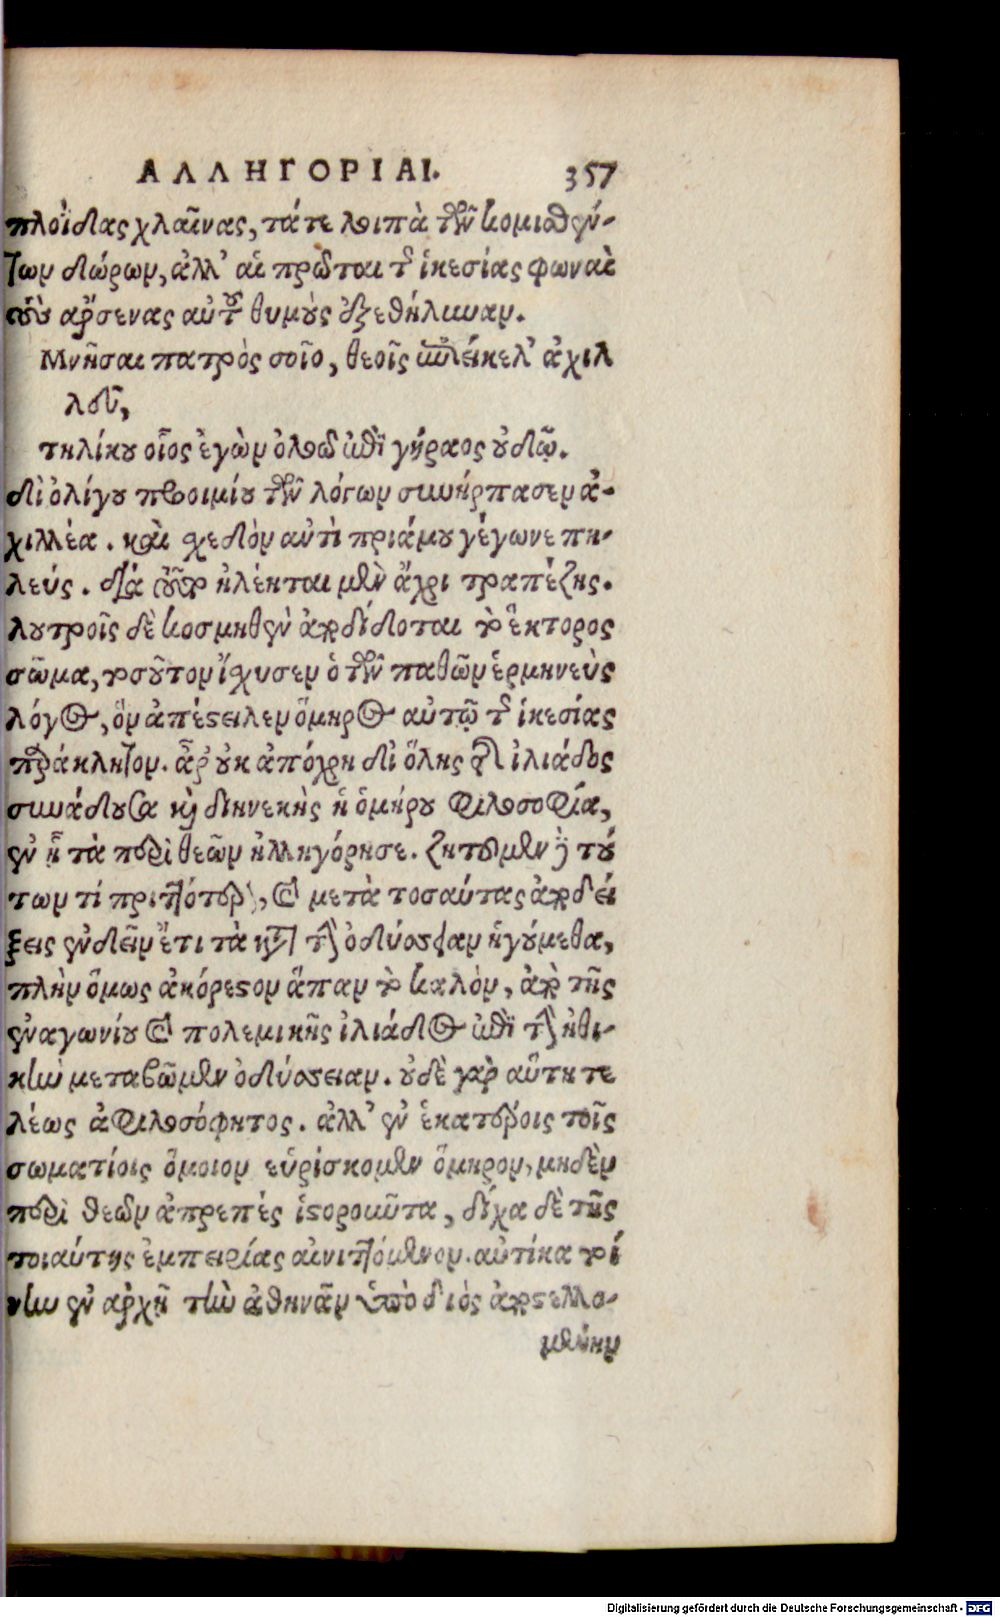 ΑΛΛΗΓΟΡΙΑΙ. 357
πλοΐδας χλαῖνας, τά τε λοιπὰ τῶν κομισθέν-
των δώρων, ἀλλ' αἱ πρῶται τῆς ἱκεσίας φωναὶ
τοὺς ἄρσενας αὐτοῦ θυμοὺς ἐξεθήλυναν.
Μνῆσαι πατρὸς σοῖο, θεοῖς ἐπιείκελ' ἀχιλ
λεῦ,
τηλίκου οἷος ἐγὼν ὀλοῷ ἐπὶ γήραος οὐδῷ.
δι' ὀλίγου προοιμίου τῶν λόγων συνήρπασεν ἀ-
χιλλέα. καὶ σχεδὸν αὐτὶ πριάμου γέγωνε πη-
λεύς. διὰ τοῦτο ἠλέηται μὲν ἄχρι τραπέζης.
λουτροῖς δὲ κοσμηθὲν ἀποδίδοται τὸ ἕκτορος
σῶμα, τοσοῦτον ἴσχυσεν ὁ τῶν παθῶν ἑρμηνεὺς
λόγος, ὃν ἀπέστειλεν ὅμηρος αὐτῷ τῆς ἱκεσίας
παράκλητον. ἆρ' οὐκ ἀπόχρη δι' ὅλης τῆς ἰλιάδος
συνάδουσα καὶ διηνεκὴς ἡ ὁμήρου φιλοσοφία,
ἐν ᾗ τὰ περὶ θεῶν ἠλληγόρησε. ζητοῦμεν δὲ τού
των τί περιττότερον, καὶ μετὰ τοσαύτας ἀποδεί
ξεις ἐνδεῖν ἔτι τὰ κατὰ τὴν ὀδύσσειαν ἡγούμεθα,
πλὴν ὅμως ἀκόρεστον ἅπαν τὸ καλὸν, ἀπὸ τῆς
ἐναγωνίου καὶ πολεμικῆς ἰλιάδος ἐπὶ τὴν ἠθι-
κὴν μεταβῶμεν ὀδύσσειαν. οὐδὲ γὰρ αὕτη τε
λέως ἀφιλοσόφητος. ἀλλ' ἐν ἑκατέροις τοῖς
σωματίοις ὅμοιον εὑρίσκομεν ὅμηρον, μηδὲν
περὶ θεῶν ἀπρεπὲς ἱστοροῦντα, δίχα δὲ τῆς
τοιαύτης ἐμπειρίας αἰνιττόμενον. αὐτίκα τοί
νυν ἐν ἀρχῇ τὴν ἀθηνᾶν ὑπὸ διὸς ἀποστελλο-
μένην
Digitalisierung gefördert durch die Deutsche Forschungsgemeinschaft - DFG